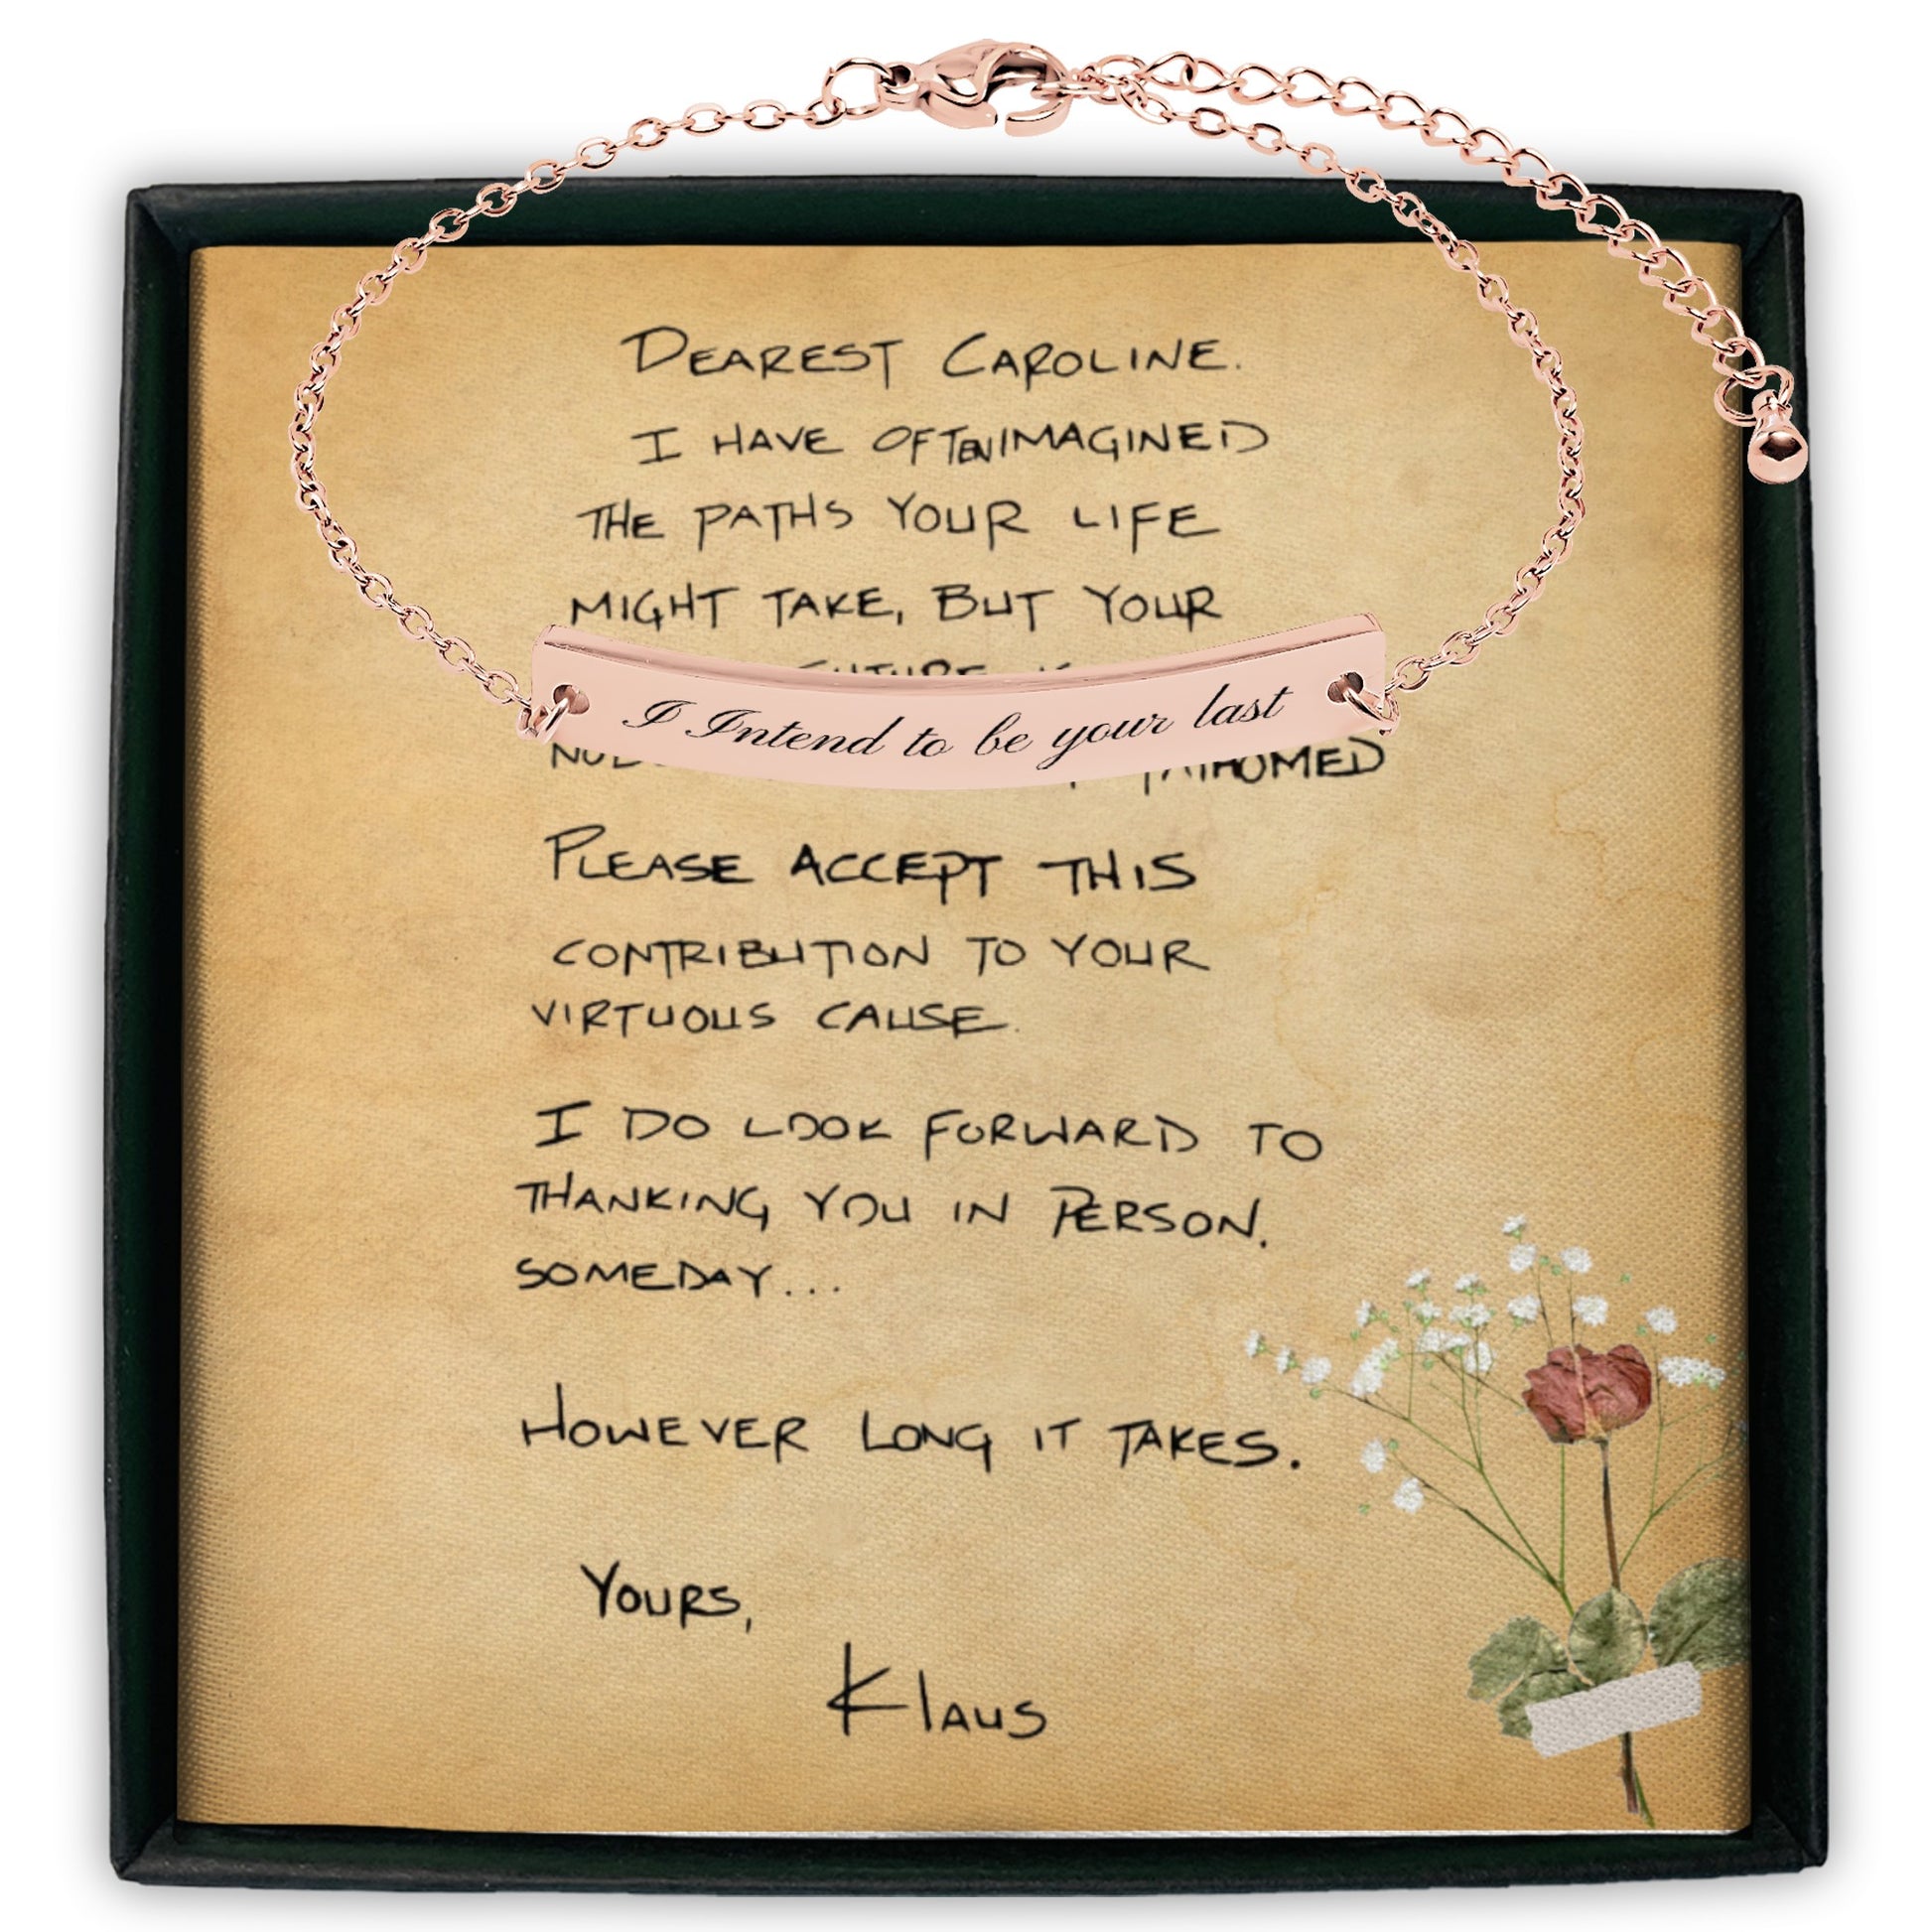 DEAREST CAROLINE.
I HAVE OFTEN IMAGINED
THE PATHS YOUR LIFE
MIGHT TAKE, BUT YOUR
I Intend to be your last
PLEASE ACCEPT THIS
CONTRIBUTION TO YOUR
VIRTUOUS CAUSE.
I DO LOOK FORWARD TO
THANKING YOU IN PERSON.
SOMEDAY...
HOWEVER LONG IT TAKES.
YOURS,
KLAUS